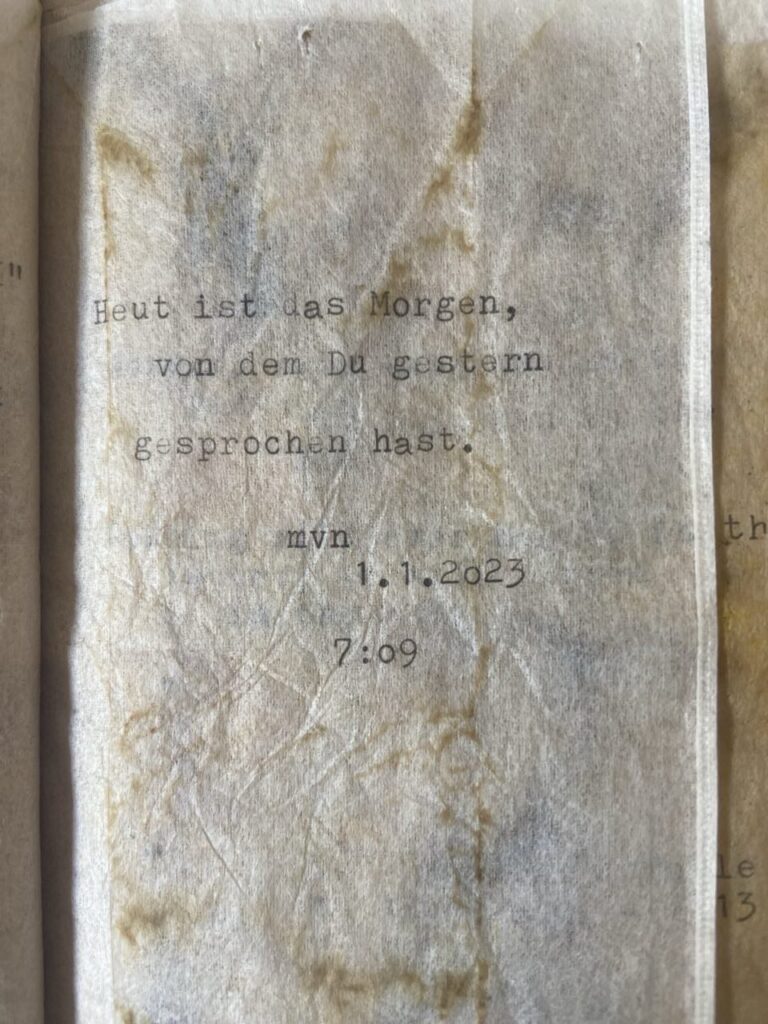 "
Heut ist das Morgen,
von dem Du gestern
gesprochen hast.
mvn
1.1.2o23
7:o9
th
le
13